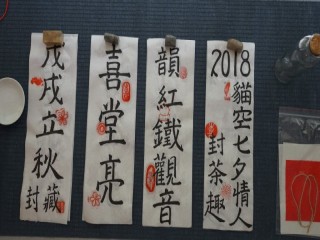 2018貓空七夕情人
封茶趣
韻紅鐵觀音
喜堂亮
戊戌立秋
封藏